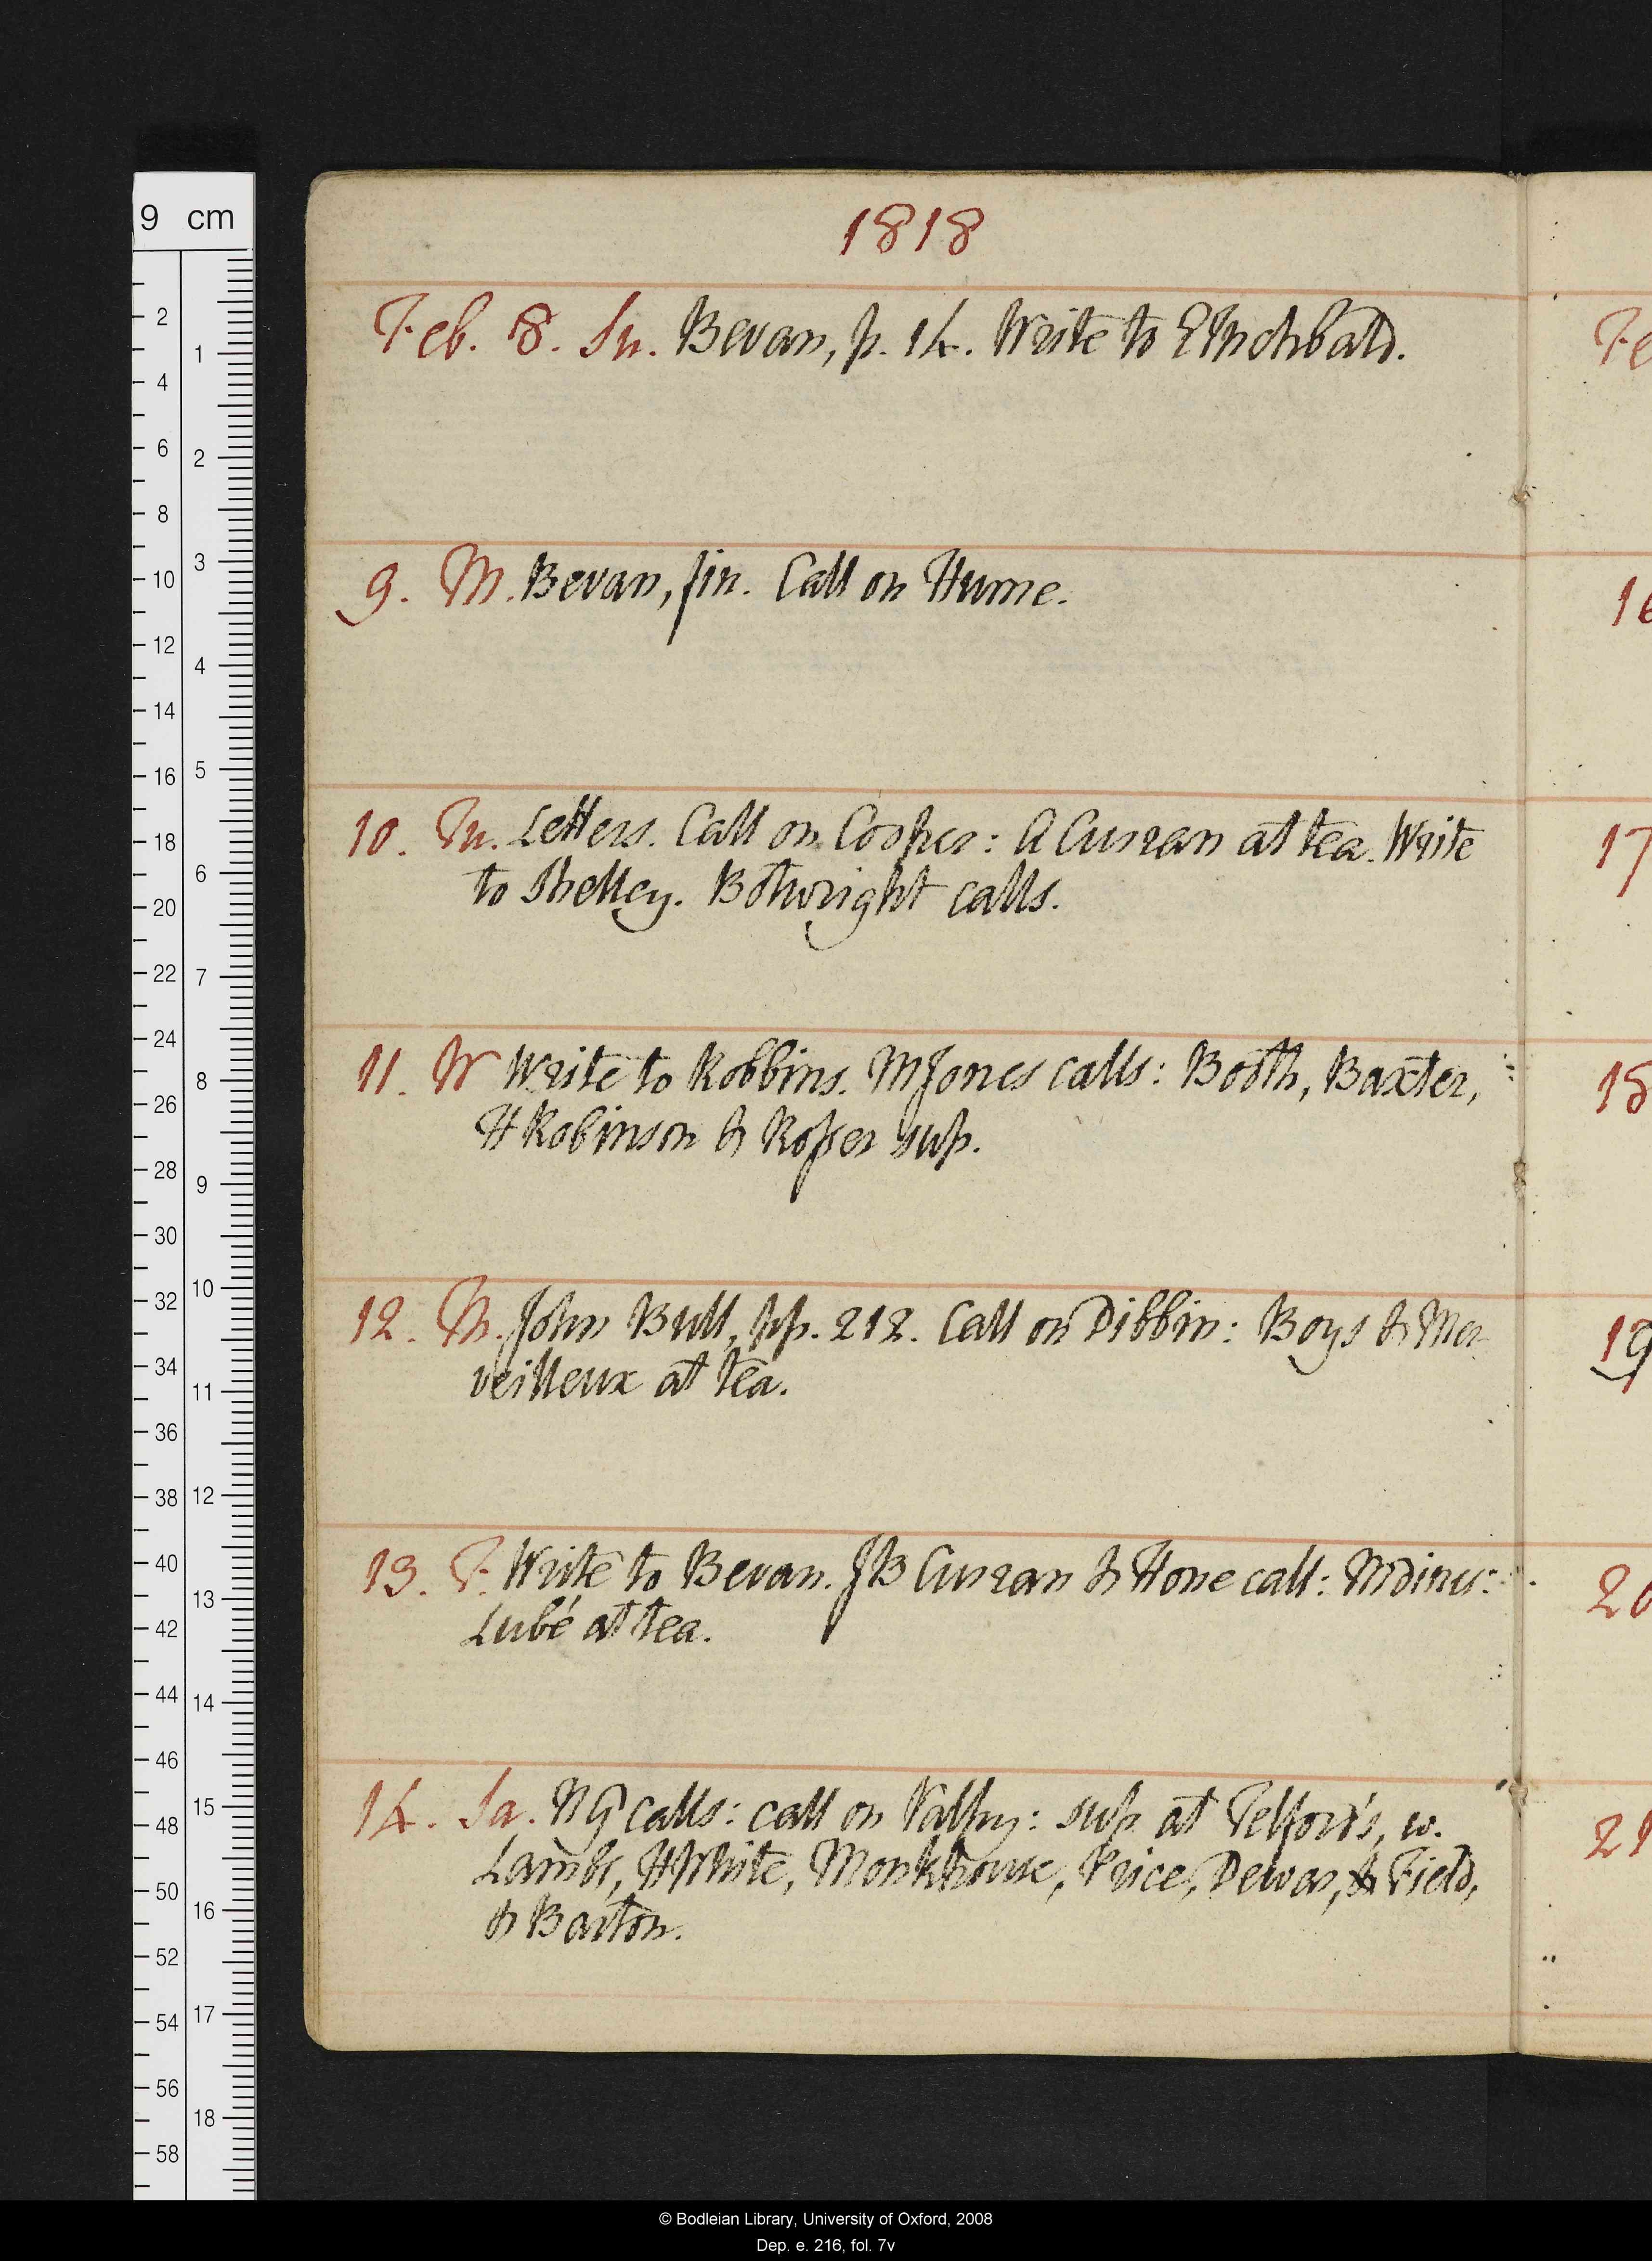 1818
Feb. 8. Su. Bevan, p. 14. Write to EInchbald.
9. M. Bevan, fin. Call on Hume.
10. Tu. Letters. Call on Cooper: A Curran at tea. Write
to Shelley. Botwright calls.
11. W Write to Robbins. MJones calls: Booth, Baxter,
HRobinson & Rosser sup.
12. Th. John Bull, pp. 212. Call on Dibbin: Boys & Mer-
veilleux at tea.
13. F. Write to Bevan. JB Curran & Hone call: M dines:
Lubé at tea.
14. Sa. NG calls: call on Valpy: sup at Telford's, w.
Lambs, HWhite, Monkhouse, Price, Dewar, & Field,
& Barton.
Fe
16
17
18
19
20
21
9 cm
2
4
6
8
10
12
14
16
18
20
22
24
26
28
30
32
34
36
38
40
42
44
46
48
50
52
54
56
58
1
2
3
4
5
6
7
8
9
10
11
12
13
14
15
16
17
18
© Bodleian Library, University of Oxford, 2008
Dep. e. 216, fol. 7v